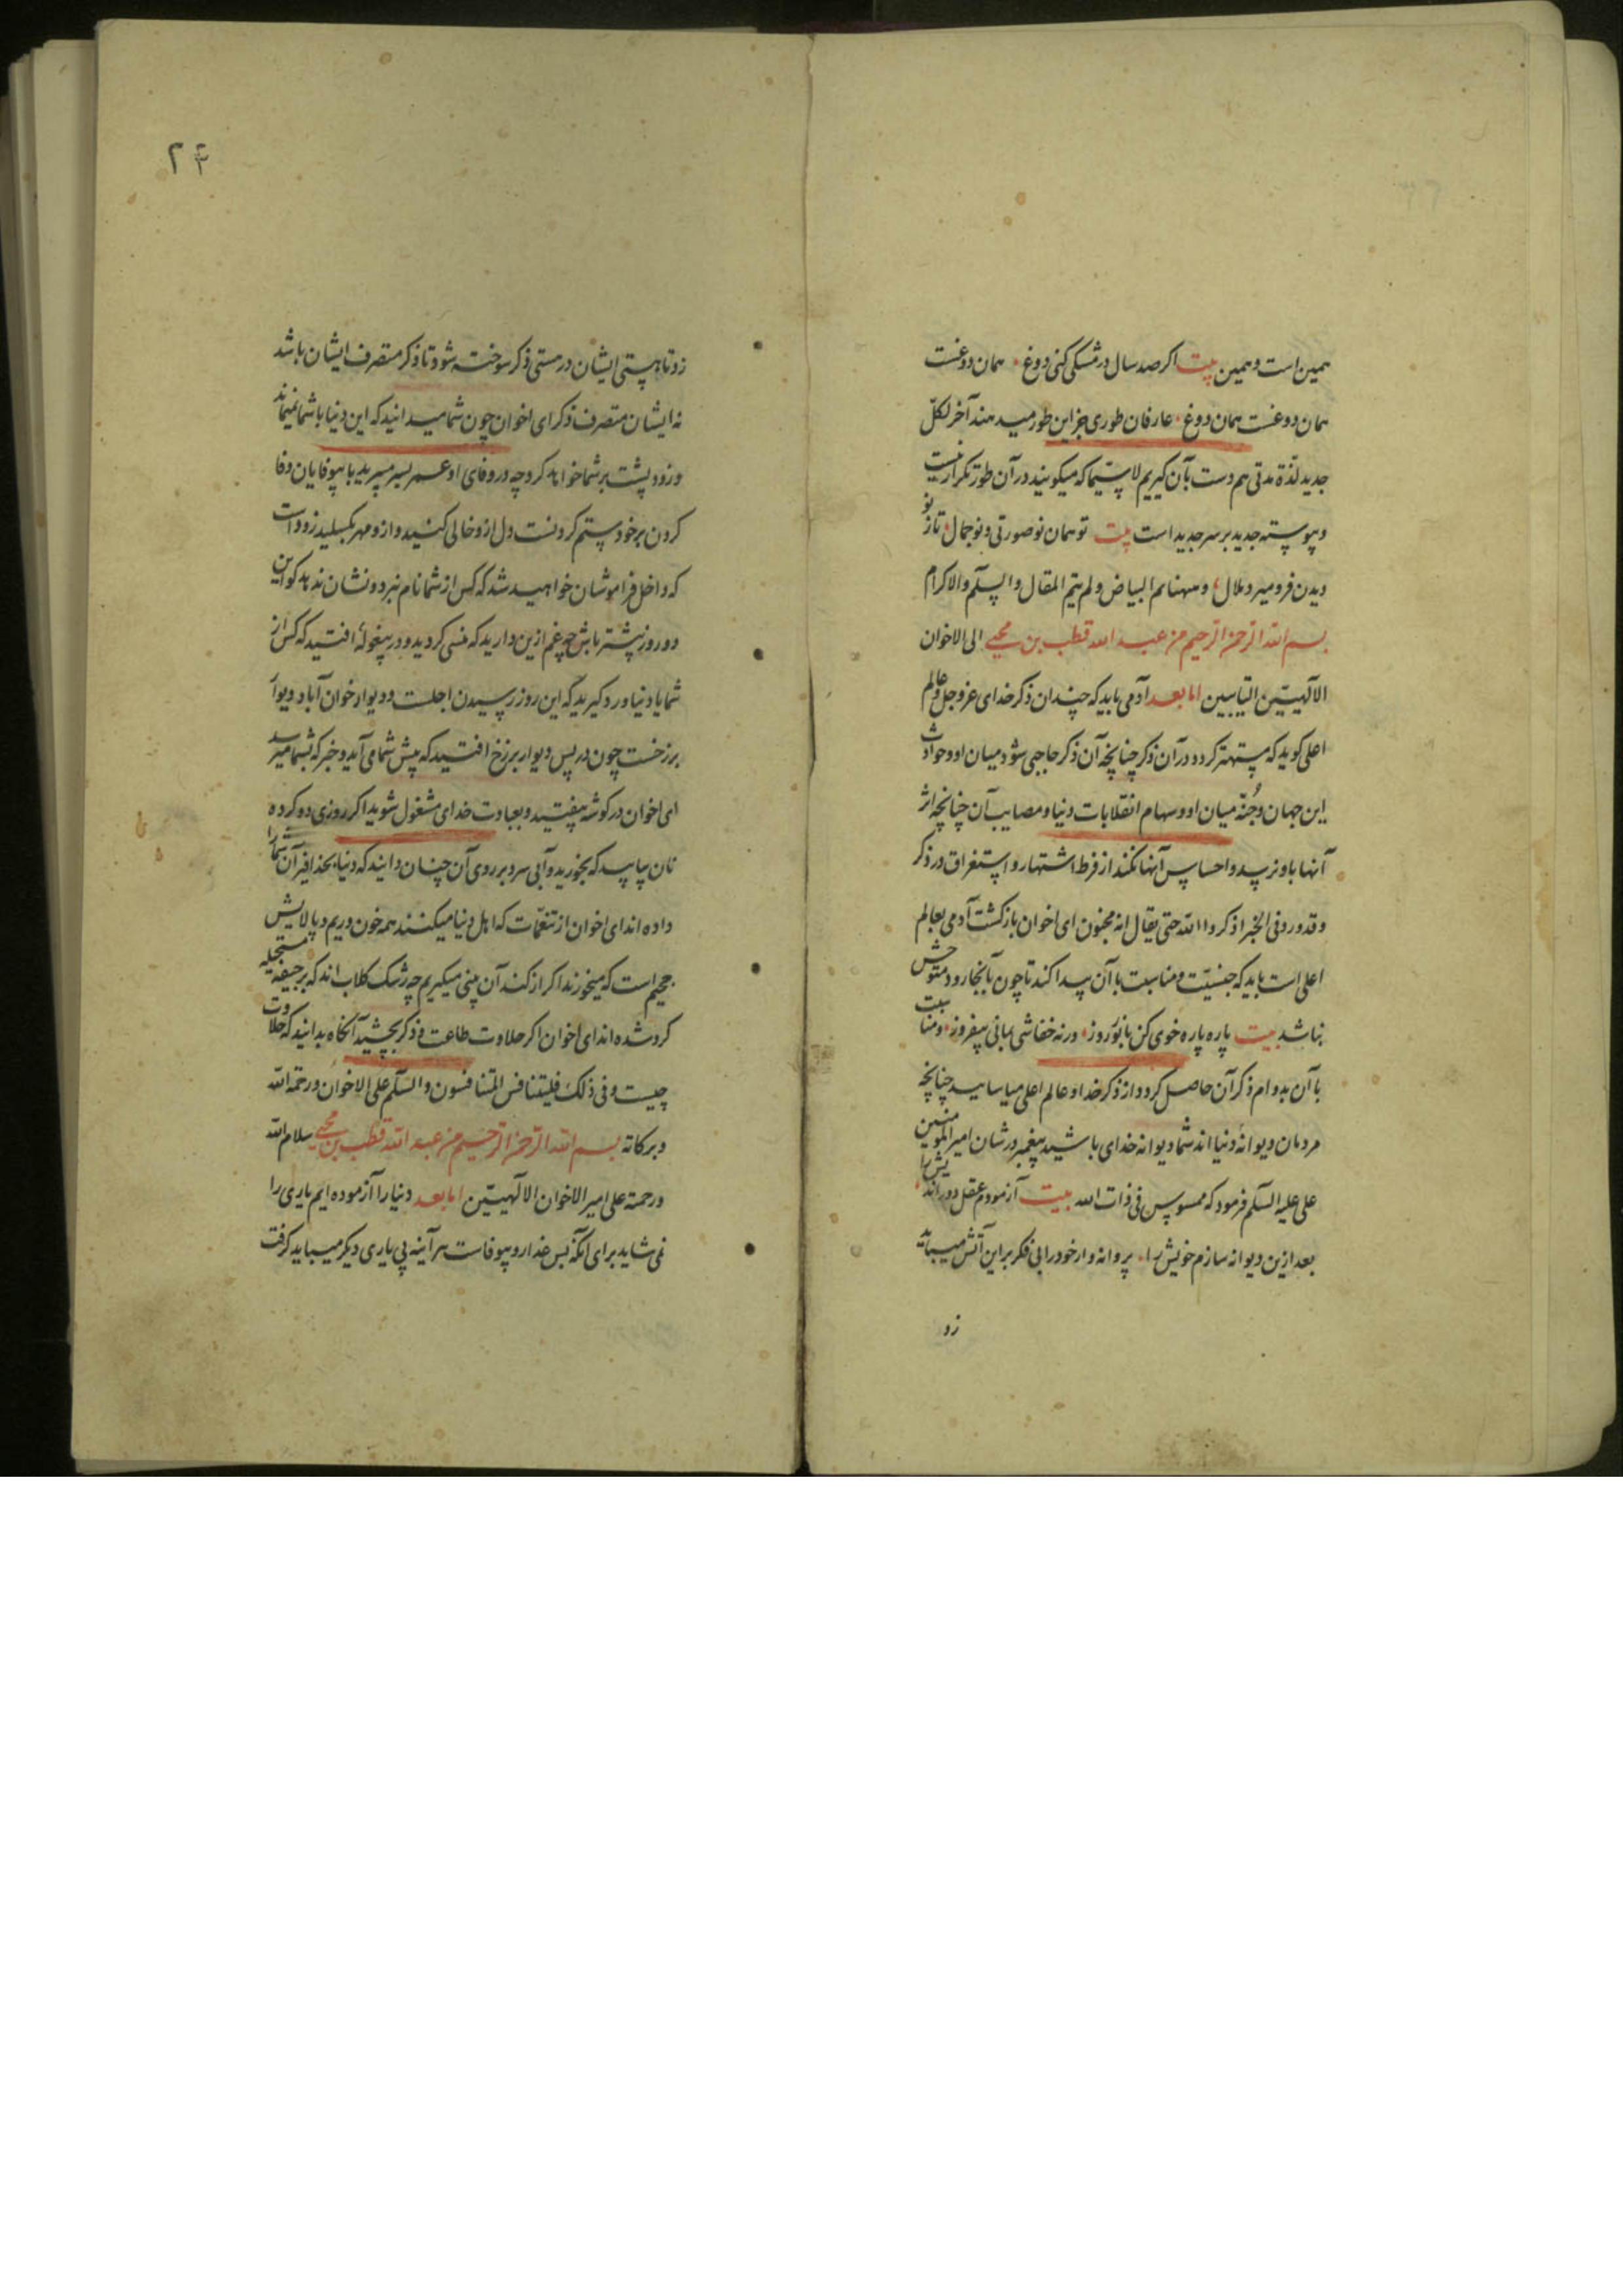 همین است و همین بیت اکر صد سال در مشکی کنی دوغ · همان دوغست
همان دوغست همان دوغ · عارفان طوری جز این طور میدهند آخر لکلّ
جدید لذّة مدتی هم دست بآن کیریم لا سیّما که میکویند در آن طور تکرار نیست
و پیوسته جدید بر سر جدید است بیت تو همان نو صورتی و نو جمال · تاز نو
دیدن فرو میرد ملال · و مهنا تم البیاض ولم یتم المقال والسلّم والاکرام
بسم الله الرحمن الرحیم من عبد الله قطب بن محیی الی الاخوان
الالهیّین التایبین اما بعد آدمی باید که چندان ذکر خدای عزوجل و عالم
اعلی کوید که مستهتر کردد در آن ذکر چنانچه آن ذکر حاجبی شود میان او و حوادث
این جهان و جُنّه میان او و سهام انقلابات دنیا و مصایب آن چنانچه اثر
آنها باو نرسد و احساس آنها نکند از فرط اشتهار و استغراق در ذکر
و قد ورد فی الخبر اذکروا الله حتی یقال انه مجنون ای اخوان بازکشت آدمی بعالم
اعلی است باید که جنسیّت و مناسبت با آن پیدا کند تا چون بآنجا رود متوحش
نباشد بیت پاره پاره خوی کن با نور روز · ورنه خفاشی بمانی بیفروز · و مناسبت
با آن بدوام ذکر آن حاصل کردد از ذکر خدا و عالم اعلی میاسایید چنانچه
مردمان دیوانهٔ دنیا اند شما دیوانه خدای باشید پیغمبر در شان امیر المومنین
علی علیه السلّم فرمود که ممسوس فی ذات الله بیت آزمودم عقل دور اندیش را
بعد ازین دیوانه سازم خویش را · پروانه وار خود را بی فکر بر این آتش میباید
زد
۲۴
زد تا هستی ایشان در مستی ذکر سوخته شود تا ذکر متصرف ایشان باشد
نه ایشان متصرف ذکر ای اخوان چون شما میدانید که این دنیا با شما نمیماند
و زود پشت بر شما خواهد کرد چه در وفای او عمر بسر میبرید با بیوفایان وفا
کردن بر خود ستم کردنست دل از و خالی کنید و از و مهر بکسلید زود است
که داخل فراموشان خواهید شد که کس از شما نام نبرد و نشان ندهد کو این
دو روز پیشتر باش چه غم ازین دارید که منسی کردید و در بیغولهٔ افتید که کس از
شما یاد نیاورد و کیرید که این روز رسیدن اجلست و دیوار خوان آباد دیوار
برزخست چون در پس دیوار برزخ افتید که پیش شما می آید و خبر که بشما میرسد
ای اخوان در کوشه بیفتید و بعبادت خدای مشغول شوید اکر روزی دو کرده
نان بیابید که بخورید و آبی سرد بر روی آن چنان دانید که دنیا بحذافیر آن شما را
داده اند ای اخوان از تنعّمات که اهل دنیا میکنند همه خون و ریم و پالایش
جحیم است که میخورند اکر از کند آن بینی میکیریم چه رشک کلاب اند که بر جیفهٔ مستحیله
کرد شده اند ای اخوان اکر حلاوت طاعت و ذکر بچشید آنکاه بدانید که حلاوت
چیست و فی ذلک فلیتنافس المتنافسون والسلّم علی الاخوان و رحمة الله
و برکاته بسم الله الرحمن الرحیم من عبد الله قطب بن محیی سلام الله
و رحمته علی امیر الاخوان الالهیّین اما بعد دنیا را آزموده ایم یاری را
نمی شاید برای آنکه بس غدار و بیوفاست هر آینه پی یاری دیکر میباید کرفت